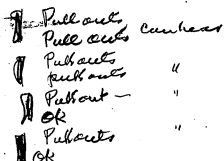 Pull outs
Pull outs canvas
Pull outs
pull outs "
Pull out - "
OK
Pull outs "
OK